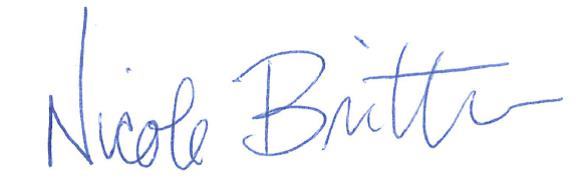 Nicole Britton